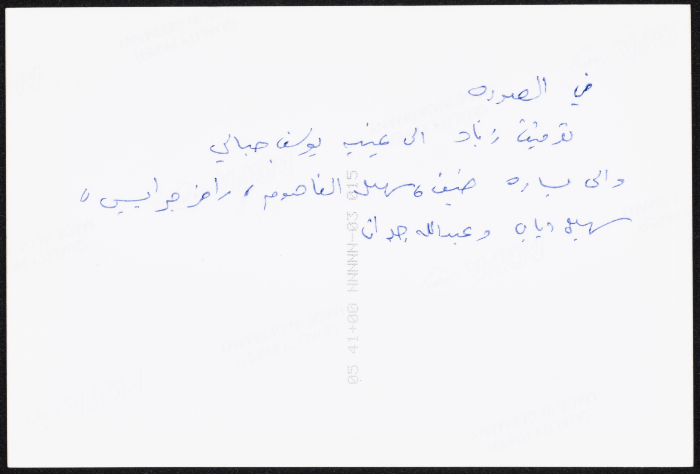 في الصوره
توفيق زياد الى يمينه يوسف جبالي
والى يساره ضيف، سهيل الفاهوم، رامز جرايسي،
سهيل دياب وعبدالله جدان
05 41+00 NNNNN-03 015